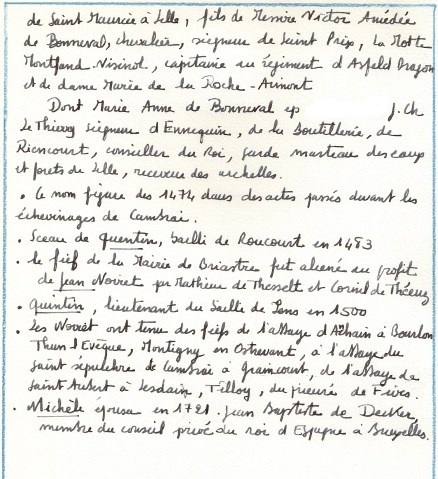 de Saint Maurice à Lille, fils de Messire Victor Amédée
de Bonneval, chevalier, seigneur de Saint Prix, La Motte
Montfand Visinol, capitaine au régiment d'Asfeld Dragon
et de dame Marie de la Roche-Aimont
Dont Marie Anne de Bonneval ep J. Ch
Le Thierry seigneur d'Ennequin, de la Boutillerie, de
Riencourt, conseiller du Roi, garde marteau des eaux
et forets de Lille, receveur des
. Ce nom figure dès 1474 dans des actes passés devant les
échevinages de Cambrai.
. Sceau de quentin, bailli de Roncourt en 1483
. le fief de la Mairie de Briastre fut aliéné au profit
de Jean Noiret par Mathieu de et Cornil de
. Quintin, lieutenant du Bailli de Lens en 1500
. Les Noirét ont tenu des fiefs de l'abbaye d'Anchin à Bourlon
Thun l'Evêque, Montigny en Ostrevant, à l'abbaye du
Saint sépulchre de Cambrai à Graincourt, de l'abbaye de
Saint Aubert à Lesdain, Tilloy, du prieuré de Fives.
. Michèle épousa en 1721 Jean Baptiste de Decker,
membre du conseil privé du roi d'Espagne à Bruxelles.